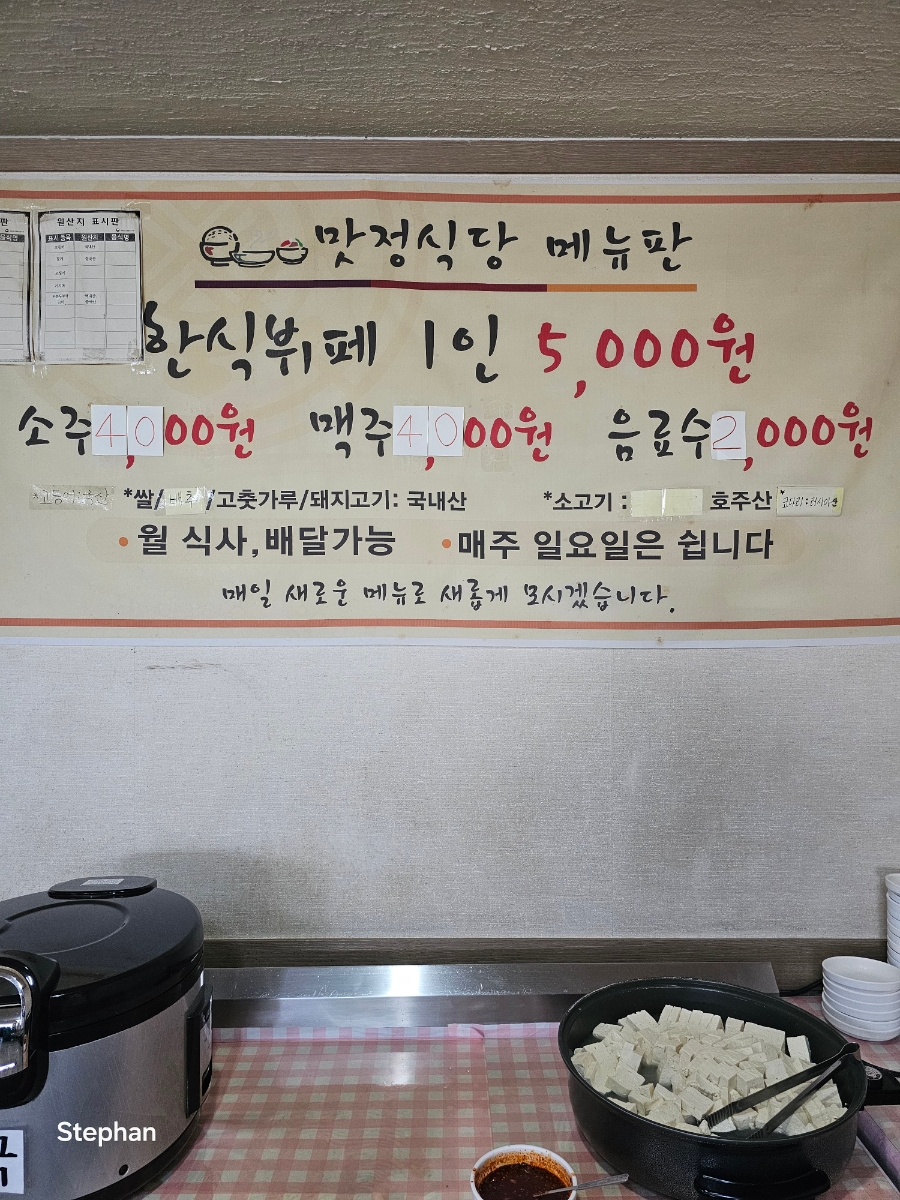 원산지 표시판
맛정식당 메뉴판
한식뷔페 1인 5,000원
소주 4,000원 맥주 4,000원 음료수 2,000원
*쌀/배추/고춧가루/돼지고기: 국내산 *소고기 : 호주산
• 월 식사,배달가능 • 매주 일요일은 쉽니다
매일 새로운 메뉴로 새롭게 모시겠습니다.
Stephan